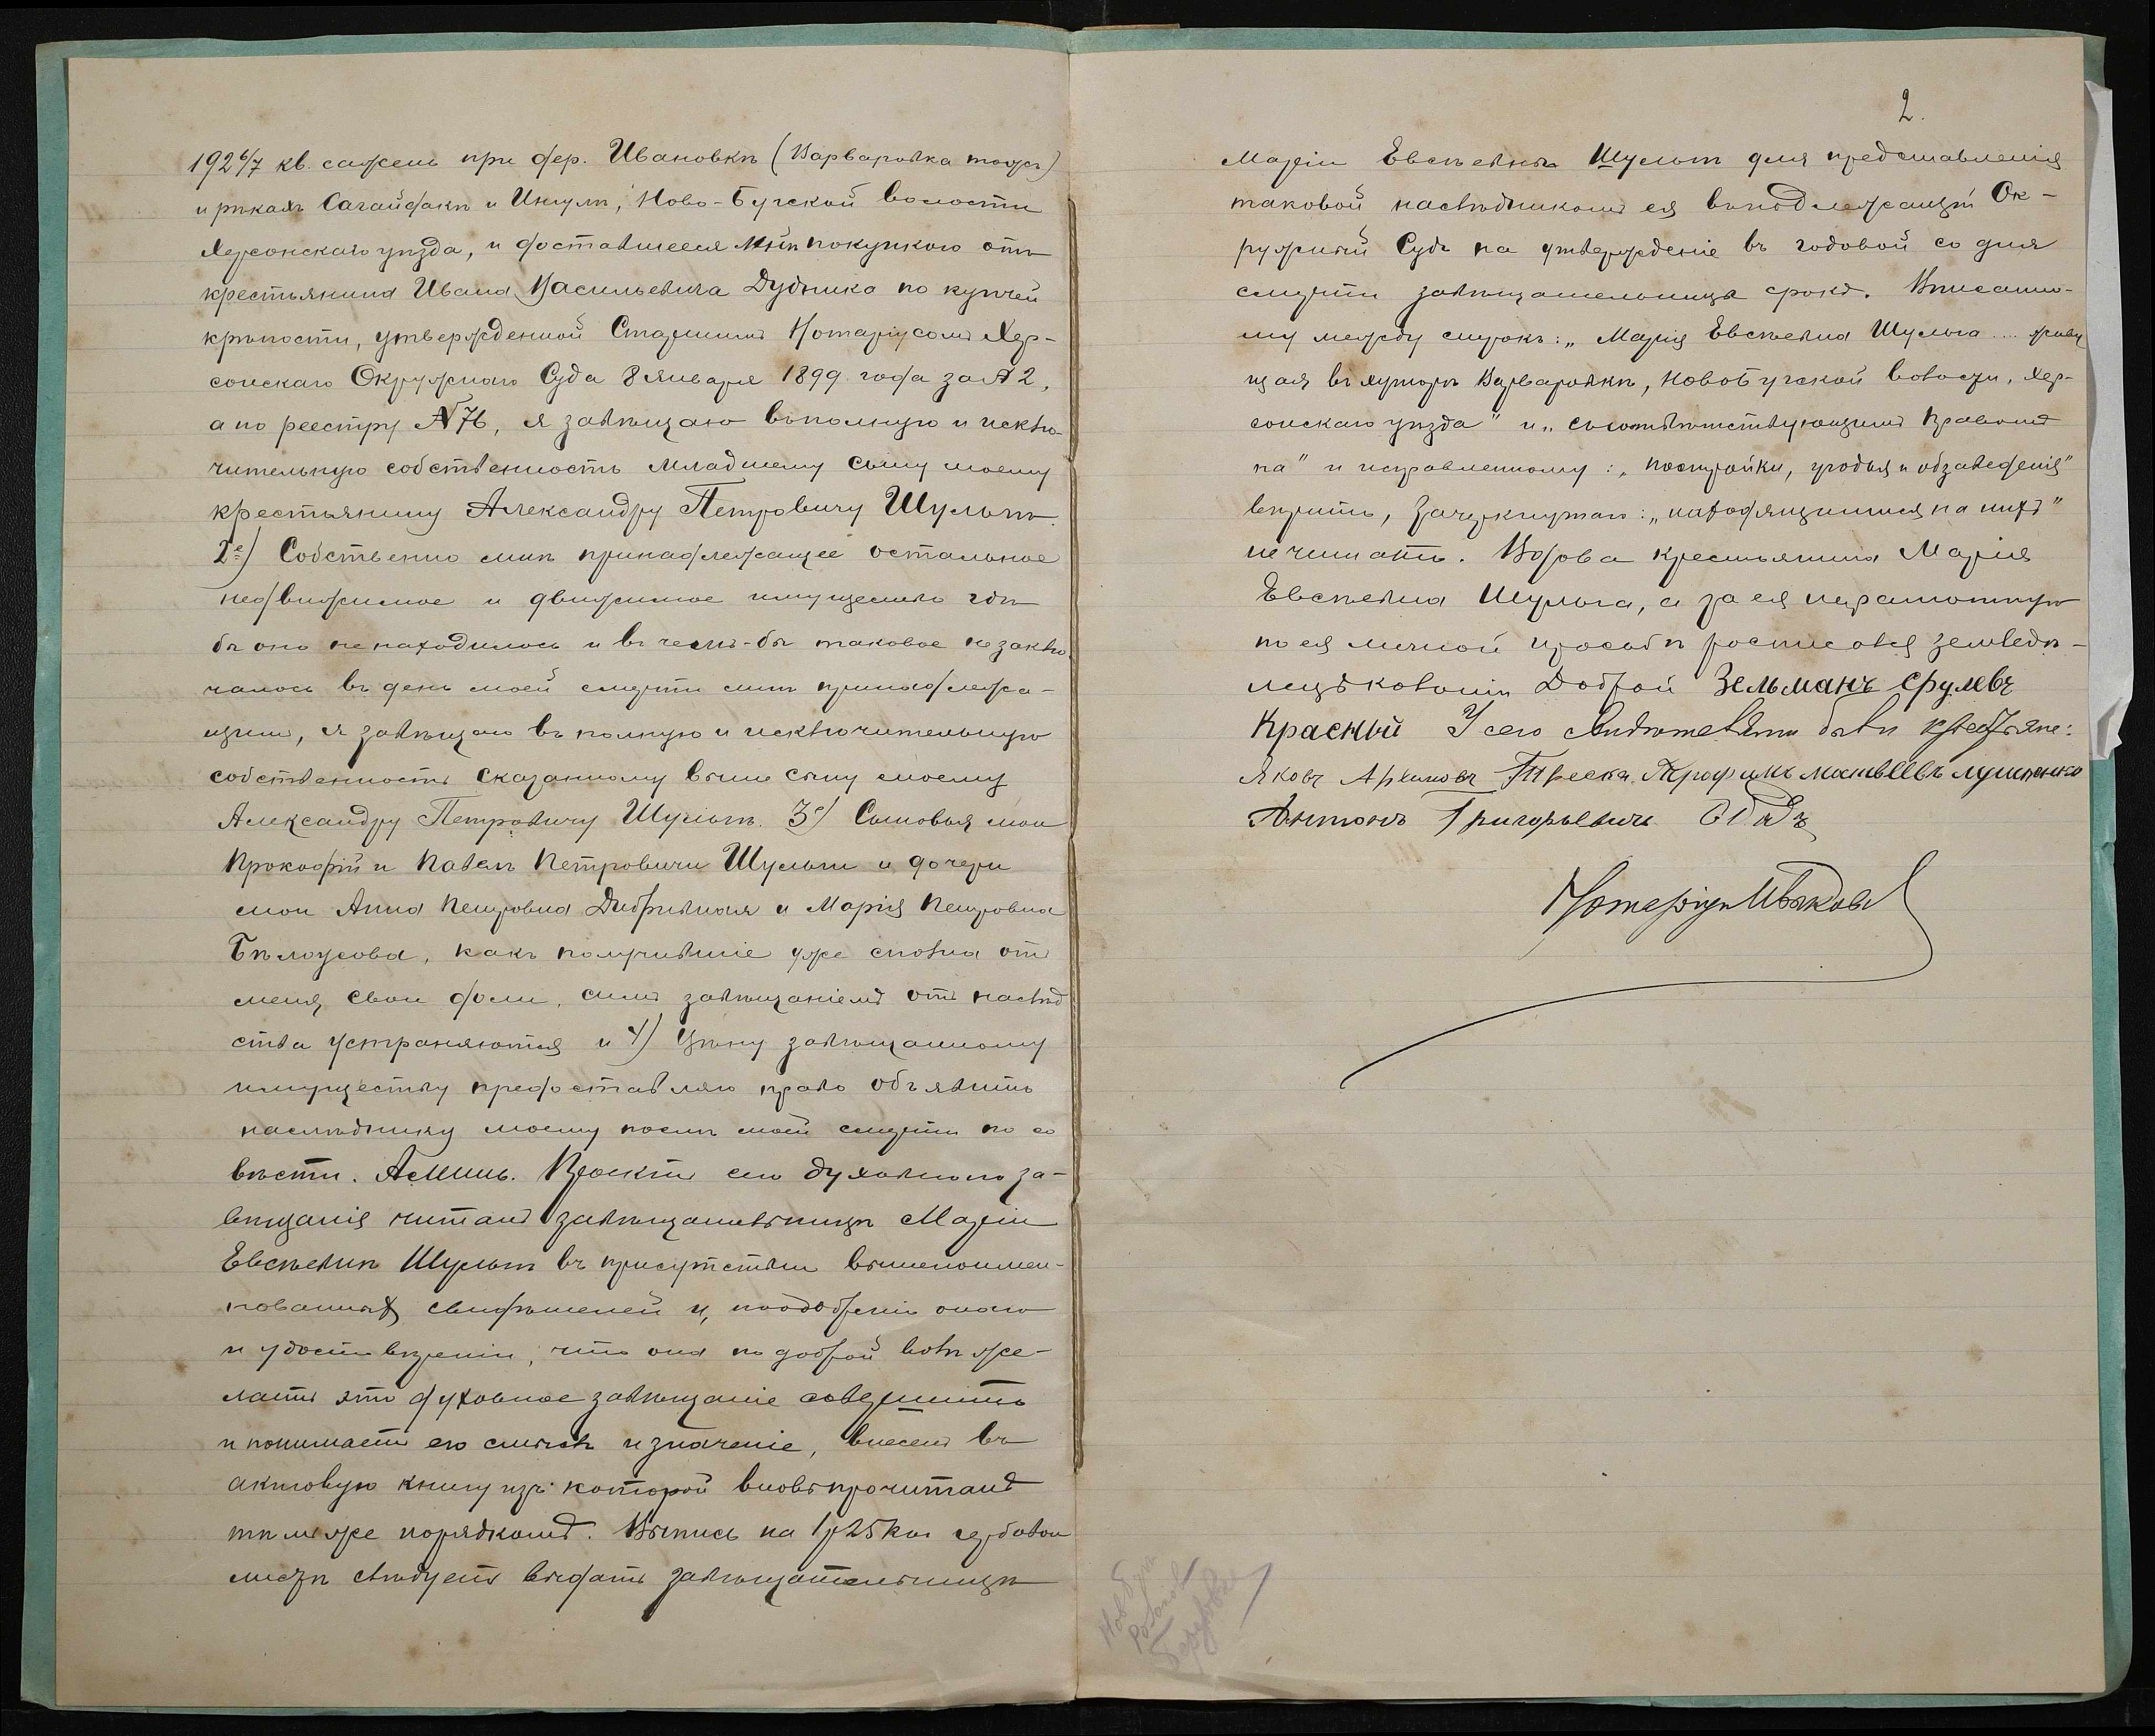 192 6/7 кв. сажень при дер. Ивановкѣ (Варваровка тожъ)
и рѣкахъ Сагайдакѣ и Ингулѣ, Ново-Бугской волости
Херсонскаго уѣзда, и доставшееся мнѣ покупкою отъ
крестьянина Ивана Васильевича Дудника по купчей
крѣпости, утвержденной Старшимъ Нотаріусомъ Хер-
сонскаго Окружнаго Суда 8 января 1899 года за № 2,
а по реестру № 76, я завѣщаю въ полную и исклю-
чительную собственность младшему сыну моему
крестьянину Александру Петровичу Шульгѣ.
2е) Собственно мнѣ принадлежащее остальное
недвижимое и движимое имущество гдѣ
бы оно не находилось и въ чемъ-бы таковое не заклю-
чалось въ день моей смерти мнѣ принадлежа-
щимъ, я завѣщаю въ полную и исключительную
собственность сказанному выше сыну моему
Александру Петровичу Шульгѣ. 3е) Сыновья мои
Прокофій и Павелъ Петровичи Шульги и дочери
мои Анна Петровна и Марія Петровна
Бѣлоусова, какъ получившіе уже сполна отъ
меня свои доли, симъ завѣщаніемъ отъ наслѣд
ства устраняются и 4) Цѣну завѣщанному
имуществу предоставляю право объявить
наслѣднику моему послѣ моей смерти по со
вѣсти. Аминь. Проектъ сего духовнаго за-
вѣщанія читанъ завѣщательницѣ Маріи
Евсѣевнѣ Шульгѣ въ присутствіи вышепоимен-
нованныхъ свидѣтелей и, по одобреніи онаго
и удостовѣреніи, что она по доброй волѣ же-
лаетъ это духовное завѣщаніе совершить
и понимаетъ его смыслъ и значеніе, внесенъ въ
актовую книгу изъ которой вновь прочитанъ
тѣмъ же порядкомъ. Выпись на 1 р 25 коп гербовом
листѣ слѣдуетъ выдать завѣщательницѣ
2.
Маріи Евсѣевнѣ Шульгѣ для представленія
таковой наслѣдникомъ ея въ подлежащій Ок-
ружный Судъ на утвержденіе въ годовой со дня
смерти завѣщательницы срокъ. Вписанно-
му между строкъ: „Марія Евсѣевна Шульга .... живу
щая въ хуторѣ Варваровкѣ, Новобугской волости, Хер-
сонскаго уѣзда" и „съ соотвѣтствующимъ правомъ
на" и исправленному: „постройки, угодья и обзаведенія"
вѣрить, зачеркнутаго: „находящимися на нихъ"
не читать. Вдова крестьянина Марія
Евсѣевна Шульга, а за ея неграмотную
по ея личной просьбѣ росписался землевла-
Доброй Зельманъ Срулевъ
Красный У сего свидѣтелями были крестьяне:
Яковъ Архиповъ Треска, Трофимъ Матвѣевъ
Антонъ Григорьевичъ
Нотаріусъ
Нов Буг